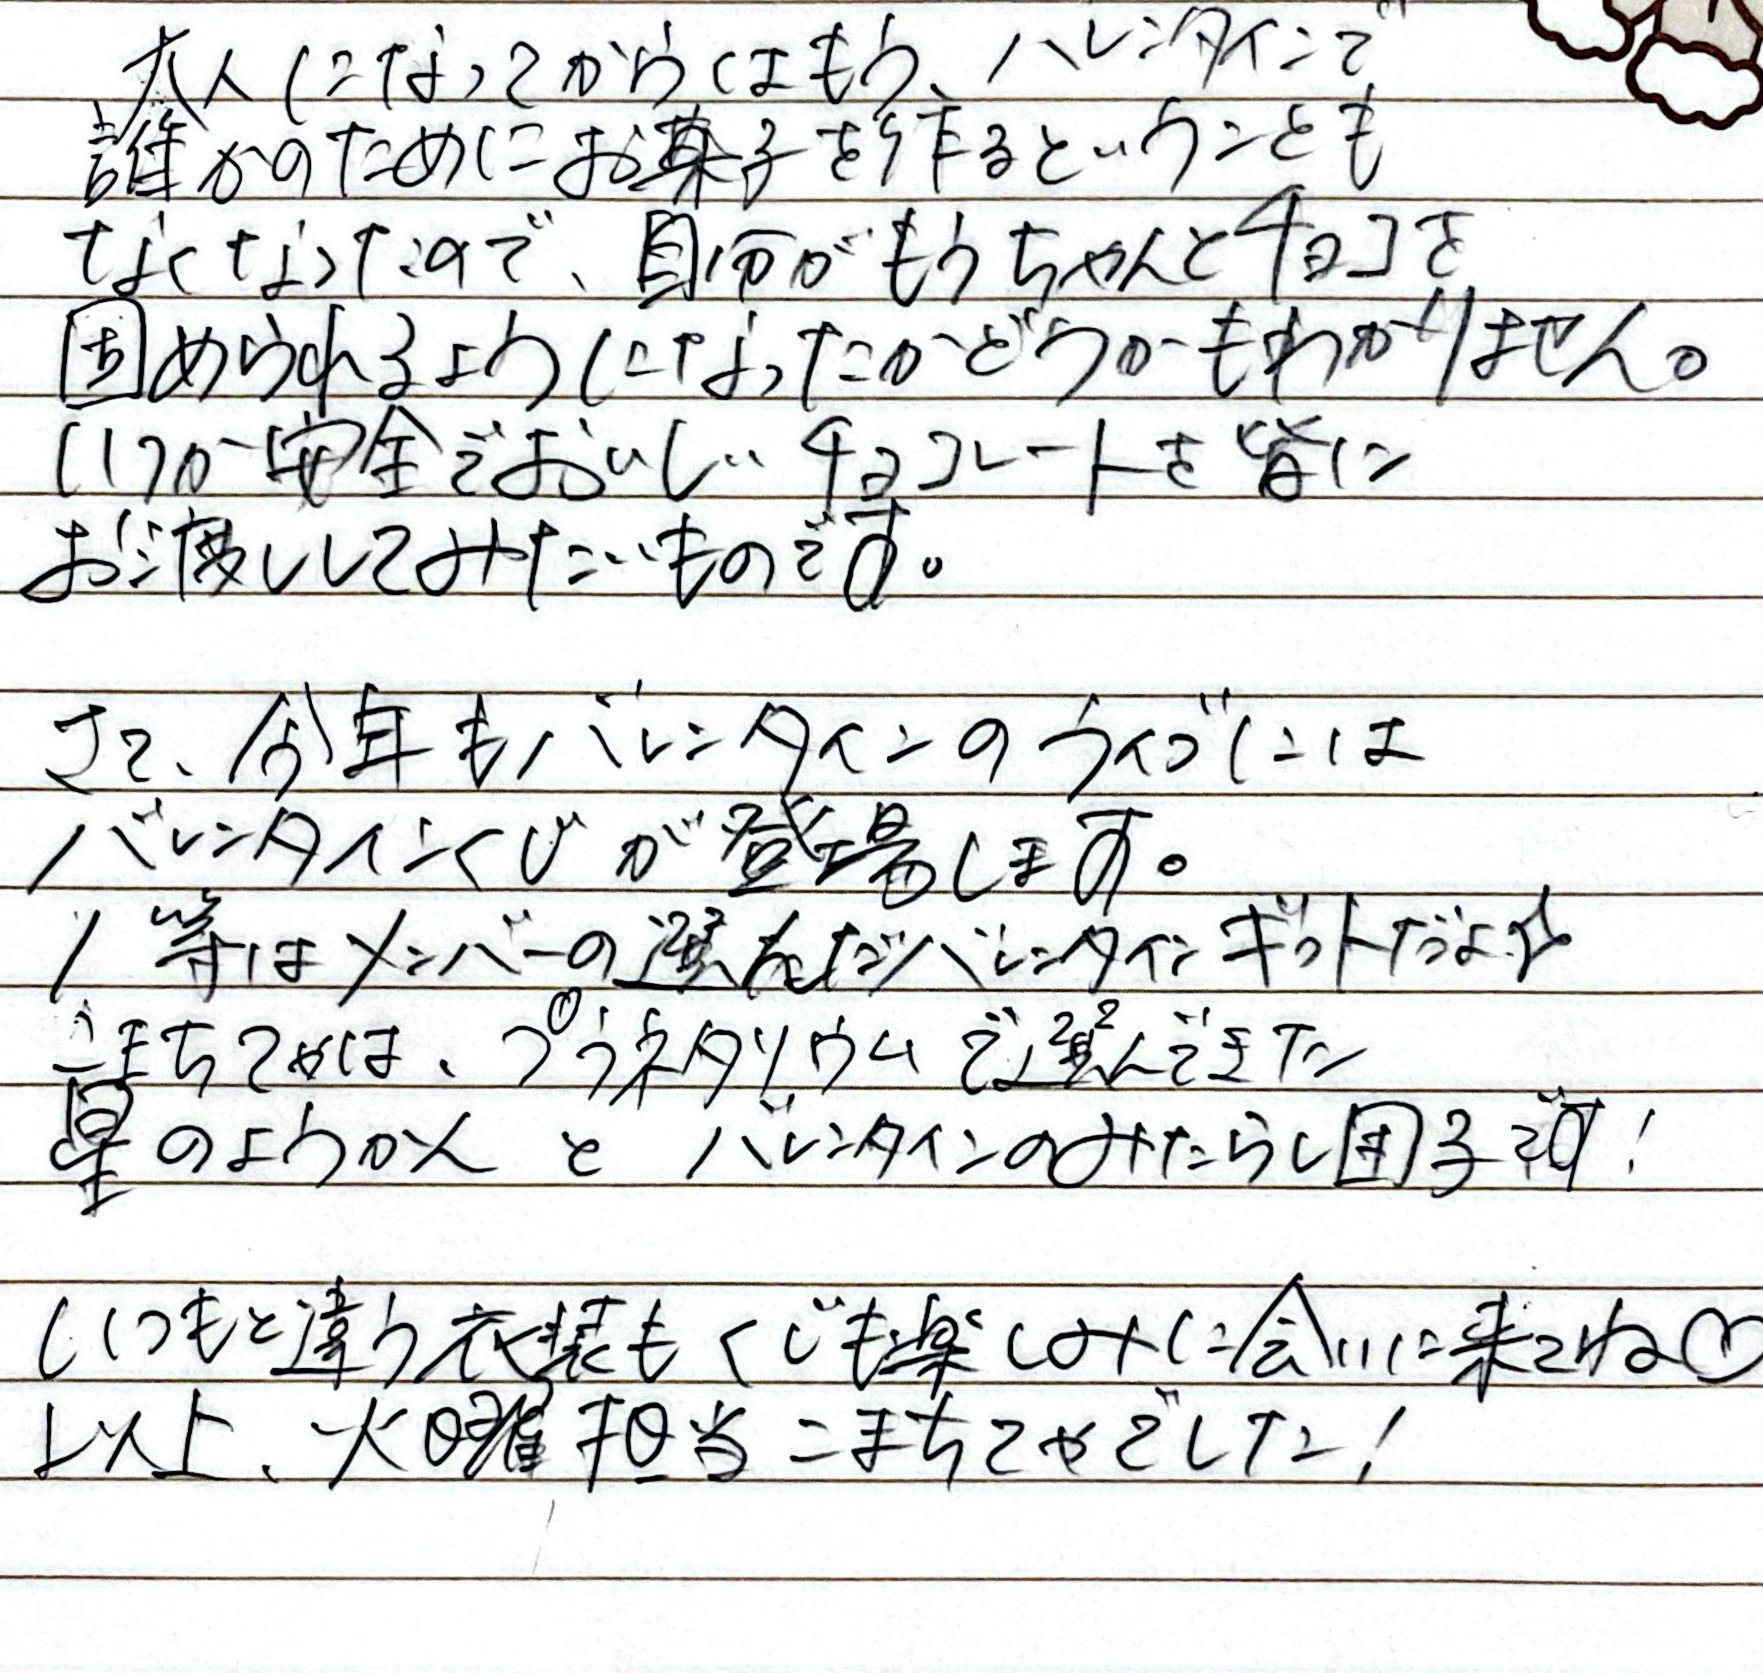 大人になってからはもう、バレンタインで
誰かのためにお菓子を作るということも
なくなったので、自分がもうちゃんとチョコを
固められるようになったかどうかもわかりません。
いつか安全でおいしいチョコレートを皆に
お渡ししてみたいものです。
さて、今年もバレンタインのライブには
バレンタインくじが登場します。
1等はメンバーの選んだバレンタインギフトだよ☆
こまちてゃは、プラネタリウムで選んできた
星のようかんとバレンタインのみたらし団子です!
いつもと違う衣装もくじも楽しみに会いに来てね♡
以上、火曜担当こまちてゃでした!